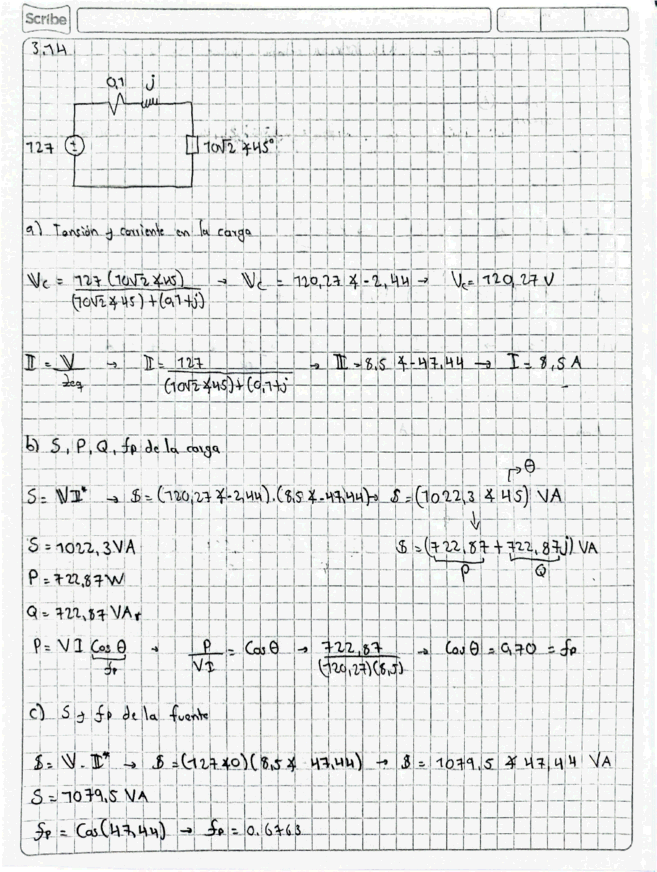 Scribe
3.14
0,1 j
127 10√2 ∡45°
a) Tensión y corriente en la carga
Vc = 127 (10√2 ∡45) / (10√2 ∡45) + (0,1+j) → Vc = 120,27 ∡-2,44 → Vc = 120,27 V
I = V / zeq → I = 127 / (10√2 ∡45) + (0,1+j → I = 8,5 ∡-47,44 → I = 8,5 A
b) S, P, Q, fp de la carga
θ
S = VI* → S = (120,27 ∡-2,44).(8,5 ∡-47,44) → S = (1022,3 ∡ 45) VA
S = 1022,3 VA S = (722,87 + 722,87j) VA
P = 722,87 W P Q
Q = 722,87 VAr
P = VI Cos θ → P / VI = Cos θ → 722,87 / (120,27)(8,5) → Cos θ = 0,70 = fp
fp
c) S y fp de la fuente
S = V . I* → S = (127 ∡0)(8,5 ∡ 47,44) → S = 1079,5 ∡ 47,44 VA
S = 1079,5 VA
fp = Cos(47,44) → fp = 0.6763